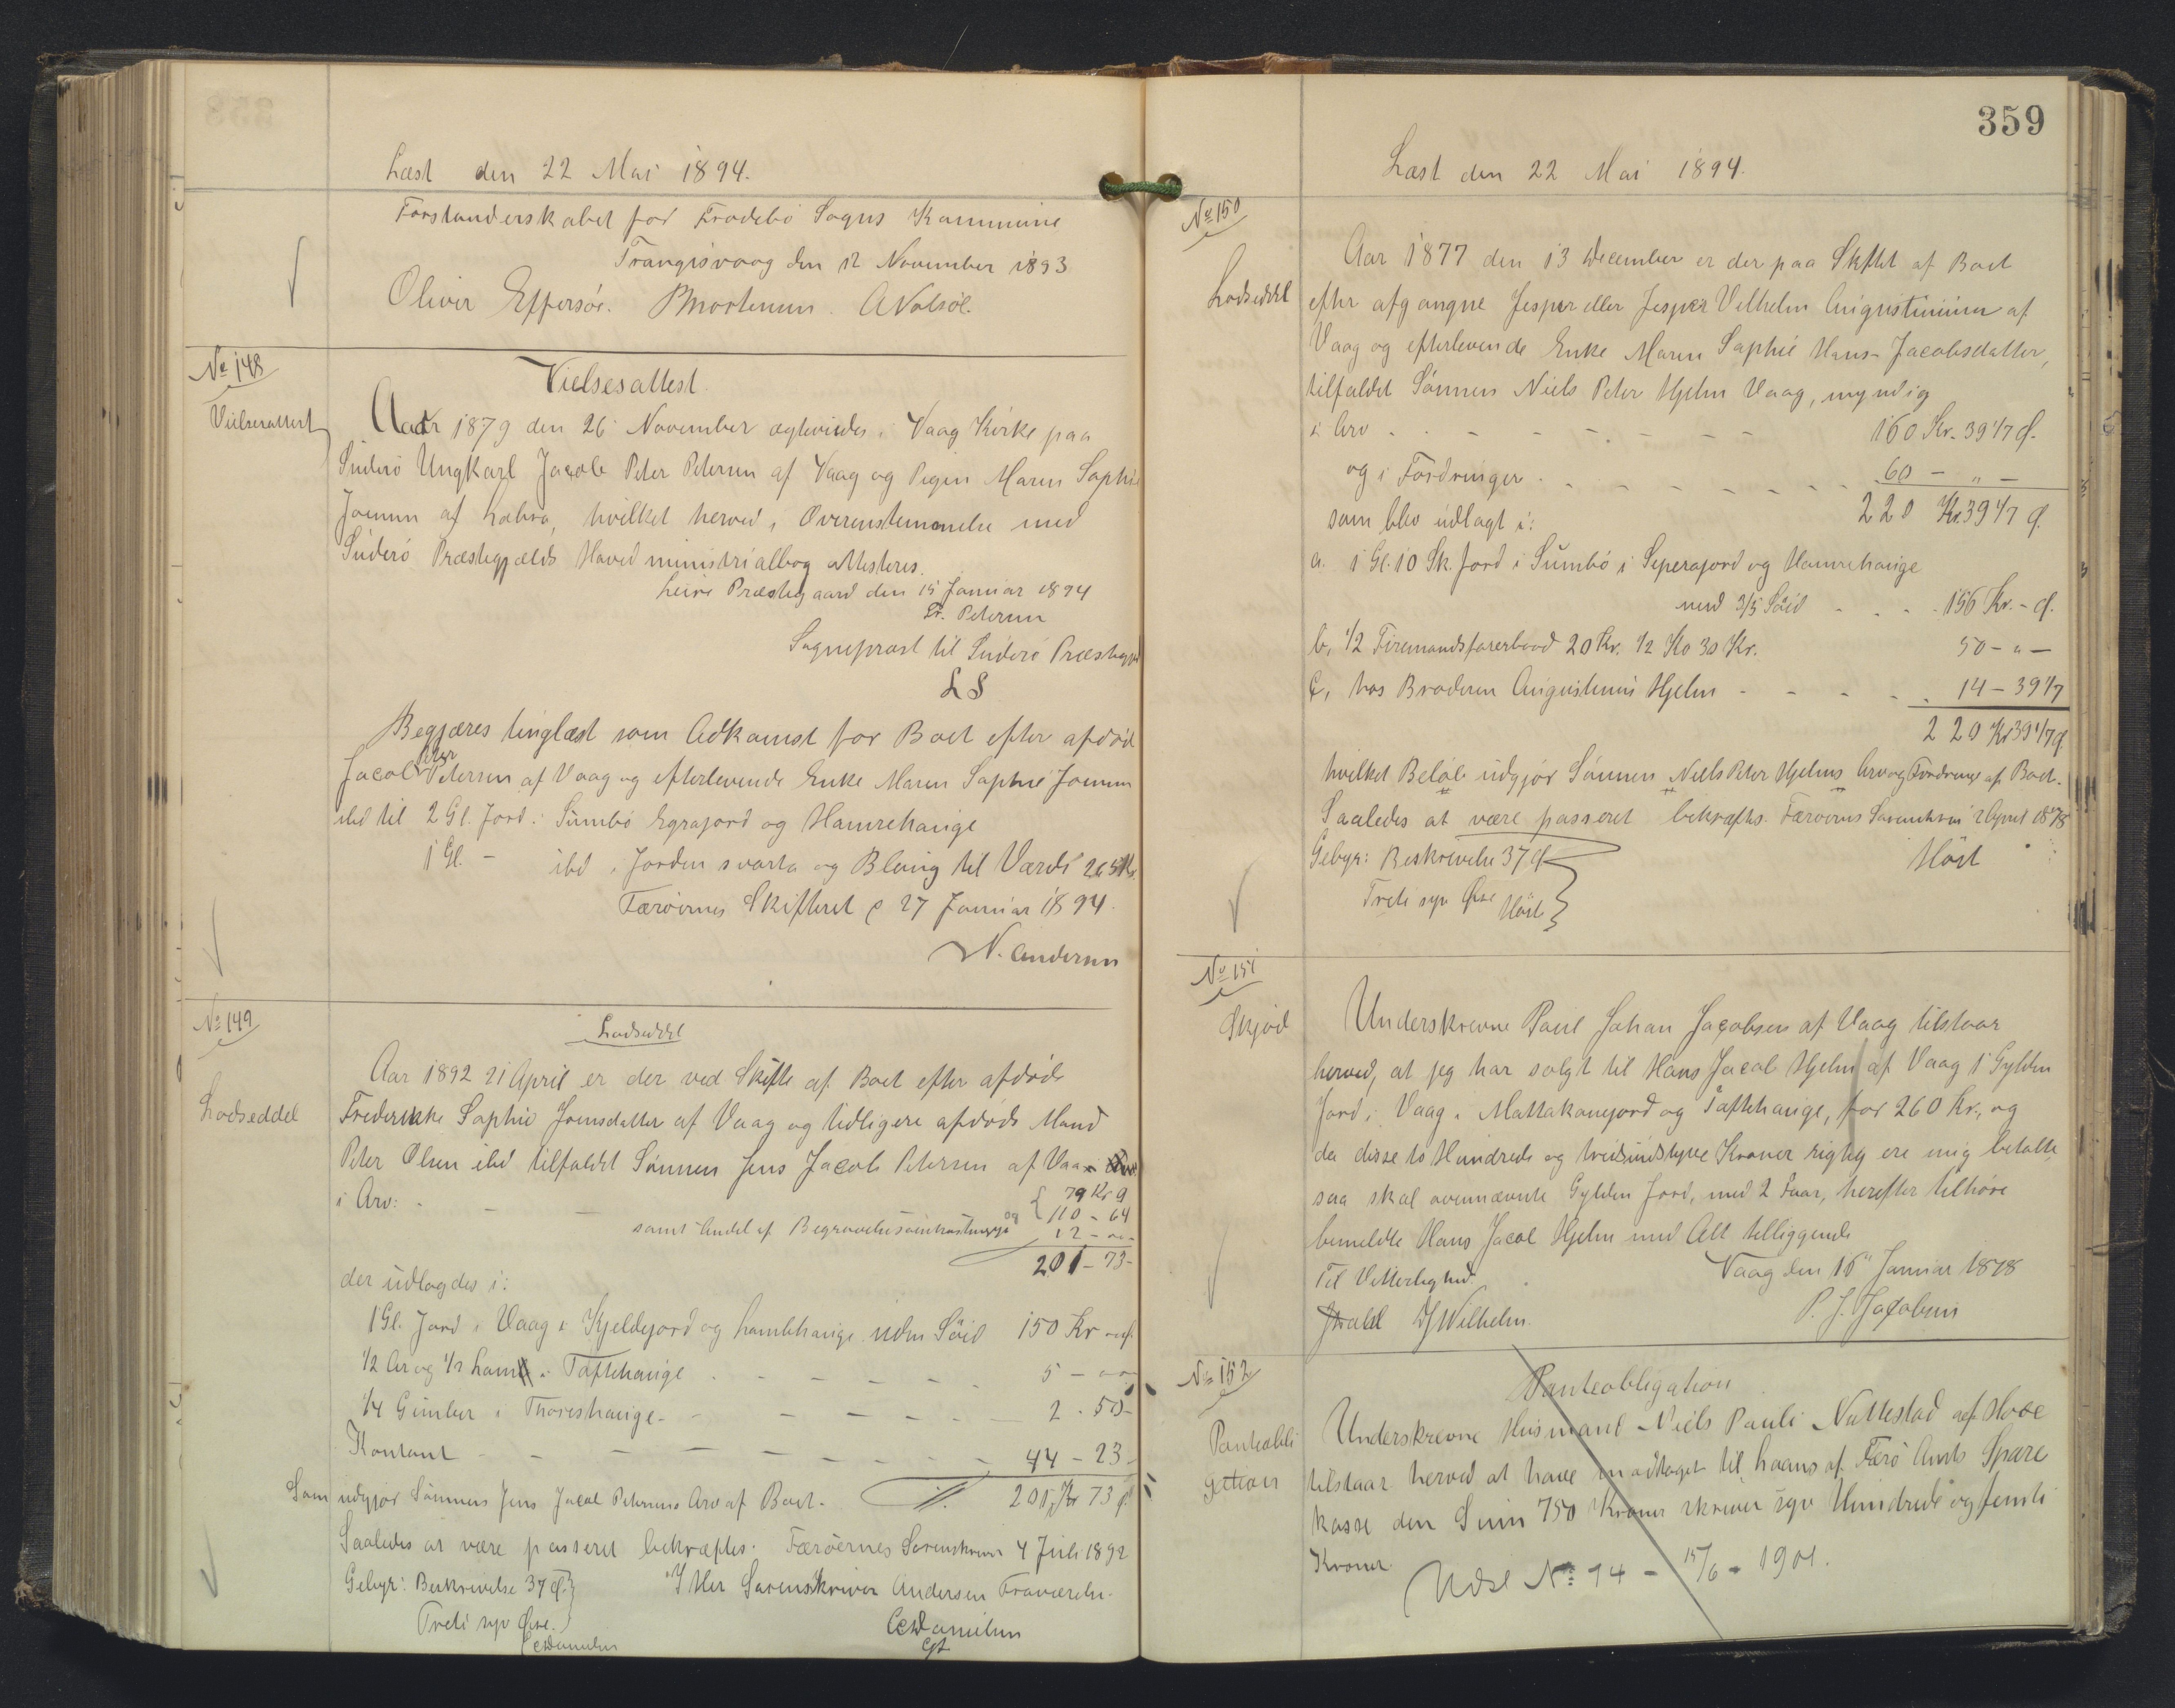 Læst den 22 Mai 1894.
Forstanderskabet for Frodebö Sogns Kommune
Trangisvaag den 12 November 1893
Oliver Effersöe. PMortensen. A
№ 148
Vielsesattest
Vielsesattest.
Aar 1879 den 26 November ægteviedes i Vaag Kirke paa
Suderö Ungkarl Jacob Peter Petersen af Vaag og Pigen Maren Sophie
Joensen af, hvilket herved i Overensstemmelse med
Suderö Præstegjælds Hovedministrialbog attesteres.
Præstegaard den 15 Januar 1894
Fr. Petersen
Sognepræst til Suderö Præstegjæld
L S
Begjæres tinglæst som Adkomst for Boet efter afdöde
Jacob Peter Petersen af Vaag og efterlevende Enke Maren Sophie Joensen
ibd til 2 Gl. Jord i Sumbö Egrajord og Hamrehauge
1 Gl. - ibd i Jorden svarta og til Værdi 265 Kr.
Færöernes Skifteret d 27 Januar 1894.
N. Andersen
№ 149
Lodseddel
Lodseddel
Aar 1892 21 April er der ved Skifte af Boet efter afdöde
Frederikke Sophie Joensdatter af Vaag og tidligere afdöde Mand
Peter Olsen ibd tilfaldet Sönnen Jens Jacob Petersen af Vaag
i Arv: - - 79 Kr 9
110 - 64
samt Andel af og 12 - " -
201 - 73 -
der udlagdes i:
1 Gl. Jord i Vaag i Kjeldejord og hauge uden Söid 150 Kr
1/2 Ær og 1/2 Lam i Toftehauge - - - 5 - " -
1/4 Gimber i Thoreshauge - - - 2 - 50 -
Kontant - - - 44 - 23 -
Som udgjör Sönnens Jens Jacob Petersens Arv af Boet. 201 Kr 73 Ø
Saaledes at være passeret bekræftes. Færöernes Sorenskriver 4 Juli 1892
Gebyr: Beskrivelse 37 Ø. I Her Sorenskriver Andersen Fraværelse.
Treti syv Öre. CesDanielsen
CesDanielsen cst
359
Læst den 22 Mai 1894.
№ 150
Lodseddel
Aar 1877 den 13 December er der paa Skiftet af Boet
efter afgangne Jesper eller Jesper Vilhelm Augustinusen af
Vaag og efterlevende Enke Maren Sophie Hans-Jacobsdatter,
tilfaldet Sönnen Niels Peter Hjelm Vaag, myndig
i Arv - - - - 160 Kr. 39 1/7 Ø.
og i Fordringer - - - - 60 - " -
220 Kr. 39 1/7 Ø.
som blev udlagt i:
a. 1 Gl. 10 Sk. Jord i Sumbö i Seperajord og Hamrehauge
med 3/5 Söid - - - 156 Kr. - Ø.
b, 1/2 Firemandsfarerbaad 20 Kr. 1/2 Ko 30 Kr. 50 - " -
c, hos Broderen Augustinus Hjelm - - - 14 - 39 1/7
220 Kr 39 1/7 Ø
hvilket Belöb udgjör Sönnen Niels Peter Hjelms Arv og Fordringe af Boet.
Saaledes at være passeret bekræftes. Færöernes Sorenskriveri 2 April 1878
Gebyr: Beskrivelse 37 Ø Höst
Treti syv Öre Höst
№ 151
Skjöd
Underskrevne Poul Johan Jacobsen af Vaag tilstaar
herved, at jeg har solgt til Hans Jacob Hjelm af Vaag 1 Gylden
Jord i Vaag i Mattakonejord og Toftehauge, for 260 Kr., og
da disse to Hundrede og tresindstyve Kroner rigtig ere mig betalte,
saa skal ovennævnte Gylden Jord, med 2 Faar, herefter tilhöre
bemeldte Hans Jacob Hjelm med Alt tilliggende
Vaag den 16 Januar 1878
Til Vitterlighed. P. J. Jacobsen
J Dahl JWilhelm.
№ 152
Panteobli
gation
Panteobligation
Underskrevne Husmand Niels Pauli Nattestad af Hove
tilstaar herved at have modtaget til Laans af Færö Amts Spare
kasse den Sum 750 Kroner skriver syv Hundrede og femti
Kroner.
Udsl № 14 - 15/6 - 1901.